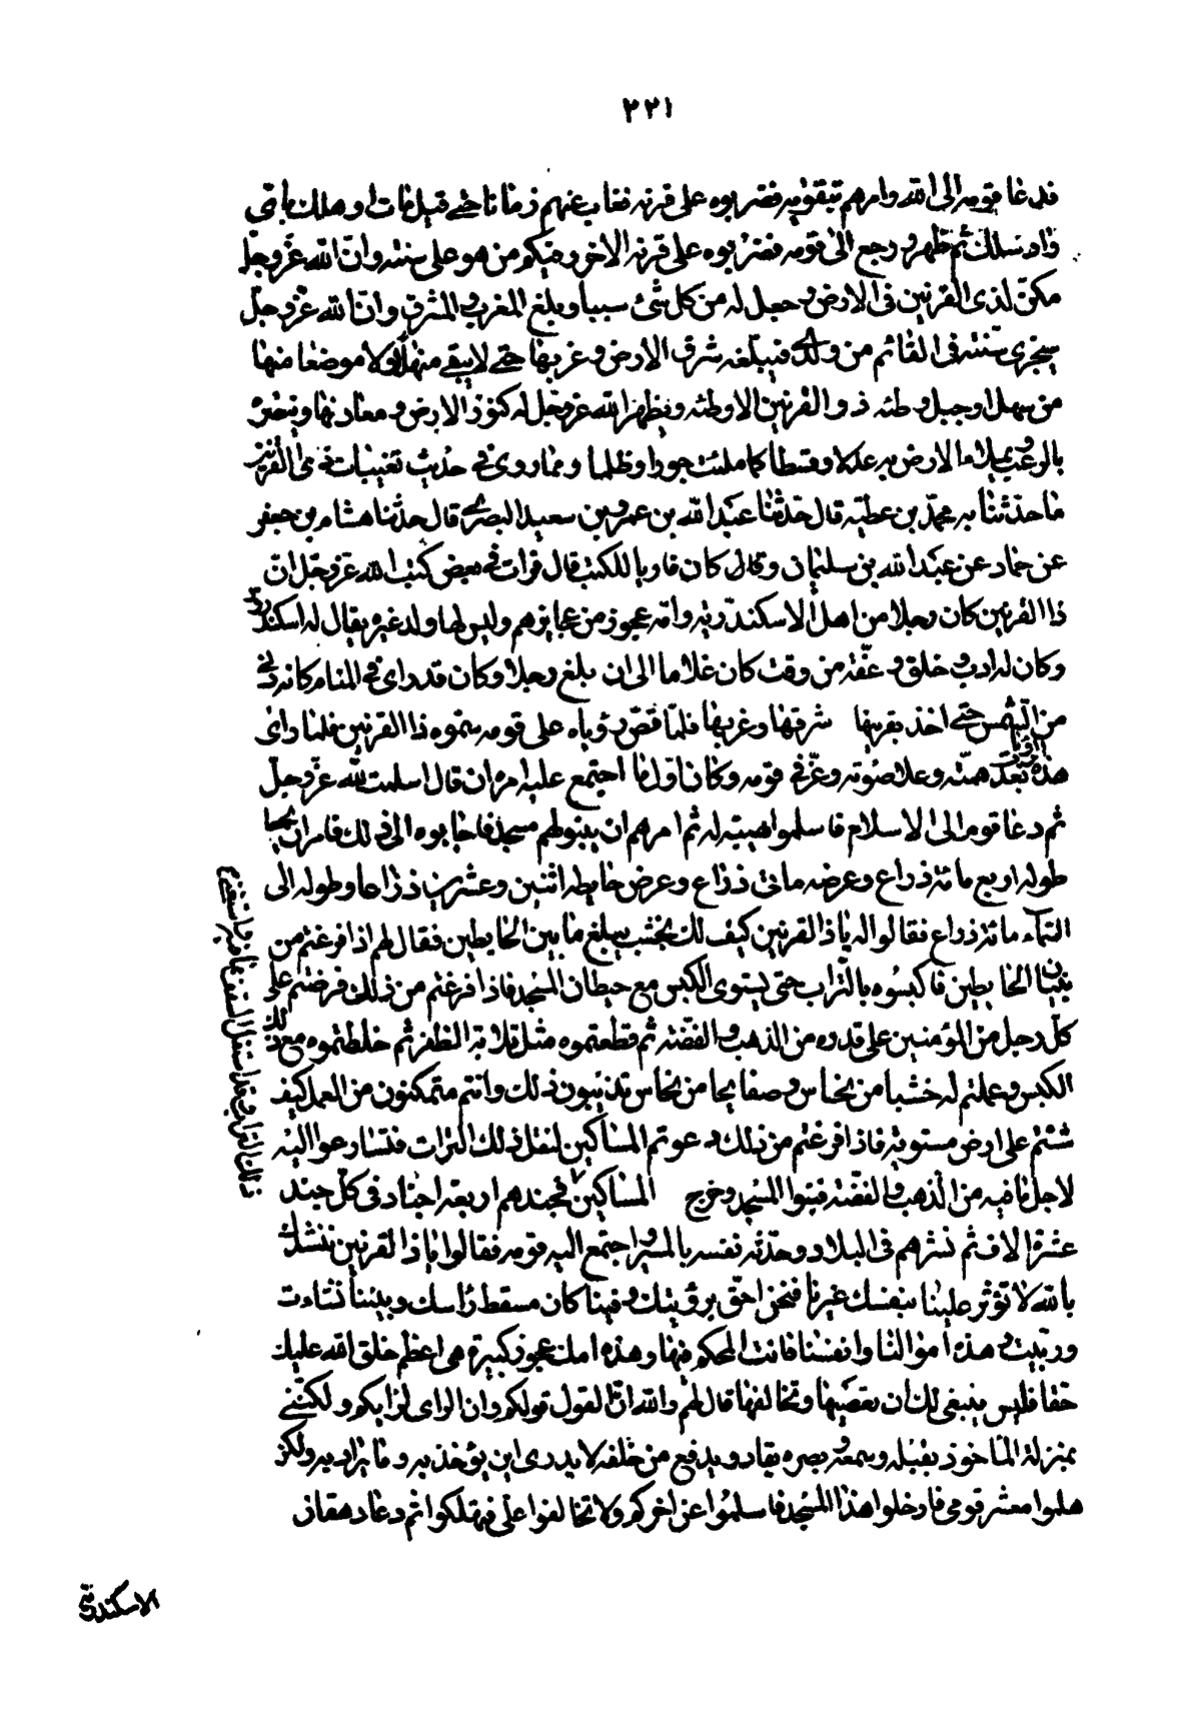 ٢٢١
فدعا قومه الى الله وامرهم بتقويه فضربوه على قرنه فغاب عنهم زمانا حتى قيل مات او هلك باى
واد سلك ثم ظهر ورجع الى قومه فضربوه على قرنه الاخر وفيكم من هو على سنته وان الله عز وجل
مكن لذى القرنين فى الارض وجعل له من كل شئ سببا وبلغ المغرب والمشرق وان الله عز وجل
سيجرى سنته فى القائم من ولدى فيبلغه شرق الارض وغربها حتى لا يبقى منهلا ولا موضعا منها
من سهل او جبل وطئه ذو القرنين الا وطئه ويظهر الله عز وجل له كنوز الارض ومعادنها وينصره
بالرعب يملاء الارض به عدلا وقسطا كما ملئت جورا وظلما ومما روى فى حديث تغيبات ذى القرنين
ما حدثنا به محمد بن عطيه قال حدثنا عبد الله بن عمرو بن سعيد البصرى قال حدثنا هشام بن جعفر
عن حماد عن عبد الله بن سليمان وقال كان قاريا للكتب قال قرات فى بعض كتب الله عز وجل ان
ذا القرنين كان رجلا من اهل الاسكندريه وامه عجوز من عجايزهم وليس لها ولد غيره يقال له اسكندروس
وكان له ادب وخلق وعفة من وقت كان غلاما الى ان بلغ رجلا وكان قد راى فى المنام كانه دنى
من الشمس حتى اخذ بقرنيها شرقها وغربها فلما قص رؤياه على قومه سموه ذا القرنين فلما راى
هذه الرؤيا بعدت همته وعلا صوته وعز فى قومه وكان اول ما اجتمع عليه امره ان قال اسلمت لله عز وجل
ثم دعا قومه الى الاسلام فاسلموا هيبة له ثم امرهم ان يبنوا لهم مسجدا فاجابوه الى ذلك فامر ان يجعلوا
طوله اربع مائة ذراع وعرضه مائتى ذراع وعرض حايطه اثنين وعشرين ذراعا وطوله الى
السماء مائة ذراع فقالوا له ياذا القرنين كيف لك بخشب يبلغ ما بين الحايطين فقال لهم اذا فرغتم من
بنيان الحايطين فاكبسوه بالتراب حتى يستوى الكبس مع حيطان المسجد فاذا فرغتم من ذلك فرضتم على
كل رجل من المؤمنين على قدره من الذهب والفضة ثم قطعتموه مثل قلامة الظفر ثم خلطتموه مع ذلك
الكبس وعملتم له خشبا من نحاس وصفايحا من نحاس تذيبون ذلك وانتم متمكنون من العمل كيف
شئتم على ارض مستوية فاذا فرغتم من ذلك دعوتم المساكين لنقل ذلك التراب فتسارعوا اليه
لاجل ما فيه من الذهب والفضة فبنوا المسجد وخرج المساكين فجندهم اربعة اجناد فى كل جند
عشرة الاف ثم نشرهم فى البلاد وحدث نفسه بالمسير واجتمع اليه قومه فقالوا ياذا القرنين ننشدك
بالله لا تؤثر علينا بنفسك غيرنا فنحن احق برؤيتك وفينا كان مسقط راسك وبيننا نشاءت
وربيت وهذه اموالنا وانفسنا فانت الحكم فيها وهذه امك عجوز كبيرة هى اعظم خلق الله عليك
حقا فليس ينبغى لك ان تعصيها وتخالفها قال لهم والله ان القول قولكم وان الراى لرايكم ولكننى
بمنزلة الماخوذ بقلبه وسمعه وبصره يقاد ويدفع من خلفه لا يدرى اين يؤخذ به وما يراد به ولكن
هلموا معشر قومى فادخلوا هذا المسجد فاسلموا عن اخركم ولا تخالفوا على فتهلكوا ثم دعا دهقان
ذلك التراب وقد استقل السقف بما فيه فاستقنع
الاسكندرية